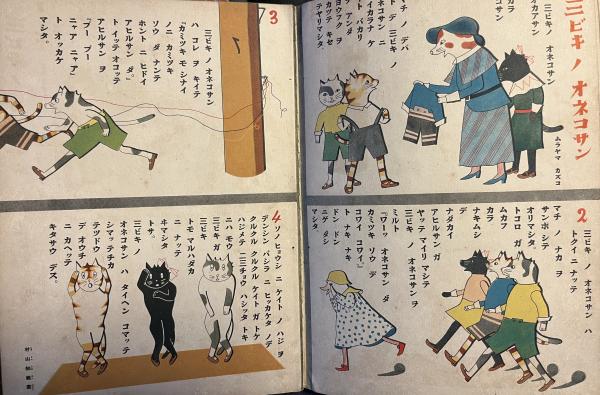 三ビキ ノ オネコサン
ムラヤマ カズコ
三ビキノ
オカアサン
カラ
マチ デパ
ト デ 三ビキ ノ
イカラナ ケ
デ アンダ
ト バカリ
ヨウフク ヲ
カツテ キセ
テヤリマシタ
2
三ビキノ オネコサン ハ
トクイ ニ ナッテ
マチ ノ ナカ ヲ
サンポ シテ
オリマシタ
トコロ ガ
ムカフ
カラ
ナキムシ
デ
ナダカイ
アヒルサン ガ
ヤッテ マイリ マシテ
三ビキ ノ オネコサン ヲ
ミルト
「ワーッ オネコサン ダ
カミツキ ソウ デ
コワイ コワイ。」
ト ナキ ナキ
ドン ドン
ニゲ ダシ
マシタ
3
三ビキ ノ オネコサン
ハ コレ ヲ キイテ
「カミツキ モ シナイ
ノニ カミツキ
ソウ ダ ナンテ
ホント ニ ヒドイ
アヒルサン ダ。」
ト イッテ オコッテ
アヒルサン ヲ
「ブー ブー
ニャア ニャア」
ト オッカケ
マシタ。
4
ソノ ヒョウシ ニ ケイト ノ ハジ ヲ
デンシン バシラ ニ ヒッカケタ ノデ
クルクル クルクル ケイト ガ トケ
ハジメテ 二三チョウ ハシッタ トキ
ニハ モウ
三ビキ ガ
トモ マルハダカ
ニ ナッテ
ヰマシタ
トサ。
三ビキ ノ
オネコサン ハ タイヘン コマッテ
シマッテ チカ
テツドウ
デ オウチ
ニ カヘッテ
キタサウ デス。
村山知義画